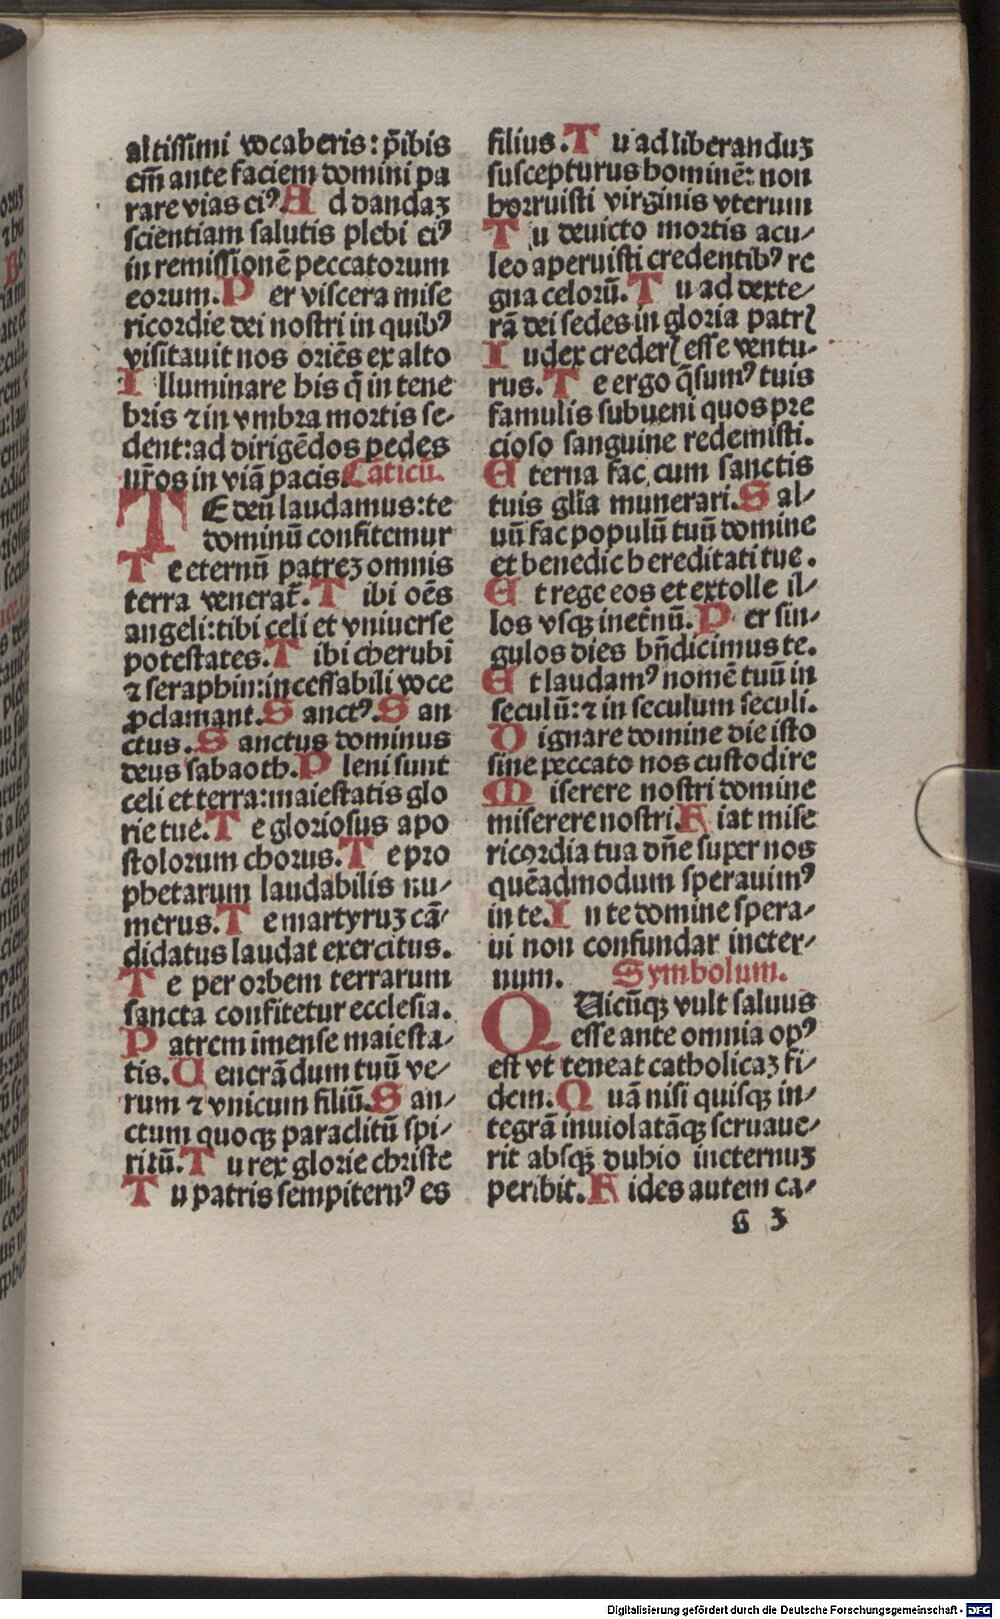 altissimi vocaberis: p̄ibis
em̄ ante faciem domini pa
rare vias eiꝰ. A d dandaꝫ
scientiam salutis plebi eiꝰ
in remissionē peccatorum
eorum. P er viscera mise
ricordie dei nostri in quibꝰ
visitauit nos oriēs ex alto
I lluminare his q̄ in tene
bris ⁊ in vmbra mortis se-
dent: ad dirigēdos pedes
ūros in viā pacis. Cāticū.
TE deū laudamus: te
dominū confitemur
T e eternū patreꝫ omnis
terra venerat̄. T ibi oēs
angeli: tibi celi et vniuerse
potestates. T ibi cherubi
⁊ seraphin: incessabili voce
ꝓclamant. S anctꝰ. S an
ctus. S anctus dominus
deus sabaoth. P leni sunt
celi et terra: maiestatis glo
rie tue. T e gloriosus apo
stolorum chorus. T e pro
phetarum laudabilis nu-
merus. T e martyruꝫ cā-
didatus laudat exercitus.
T e per orbem terrarum
sancta confitetur ecclesia.
P atrem īmense maiesta-
tis. U enerādum tuū ve-
rum ⁊ vnicum filiū. S an-
ctum quoqꝫ paraclitū spi-
ritū. T u rex glorie christe
T u patris sempiternꝰ es
filius. T u ad liberanduꝫ
suscepturus hominē: non
horruisti virginis vterum
T u deuicto mortis acu-
leo aperuisti credentibꝰ re
gna celorū. T u ad dexte-
rā dei sedes in gloria patrꝭ
I udex crederꝭ esse ventu-
rus. T e ergo q̄sumꝰ tuis
famulis subueni quos pre
cioso sanguine redemisti.
E terna fac cum sanctis
tuis gl̄ia munerari. S al-
uū fac populū tuū domine
et benedic hereditati tue.
E t rege eos et extolle il-
los vsqꝫ inet̄nū. P er sin-
gulos dies bn̄dicimus te.
E t laudamꝰ nomē tuū in
seculū: ⁊ in seculum seculi.
D ignare domine die isto
sine peccato nos custodire
M iserere nostri domine
miserere nostri. F iat mise
ricordia tua dn̄e super nos
quēadmodum sperauimꝰ
in te. I n te domine spera-
ui non confundar in eter-
num. Symbolum.
QUicūqꝫ vult saluus
esse ante omnia opꝰ
est vt teneat catholicaꝫ fi-
dem. Q uā nisi quisqꝫ in-
tegrā inuiolatāqꝫ seruaue-
rit absqꝫ dubio in eternuꝫ
peribit. F ides autem ca-
G 3
Digitalisierung gefördert durch die Deutsche Forschungsgemeinschaft - DFG